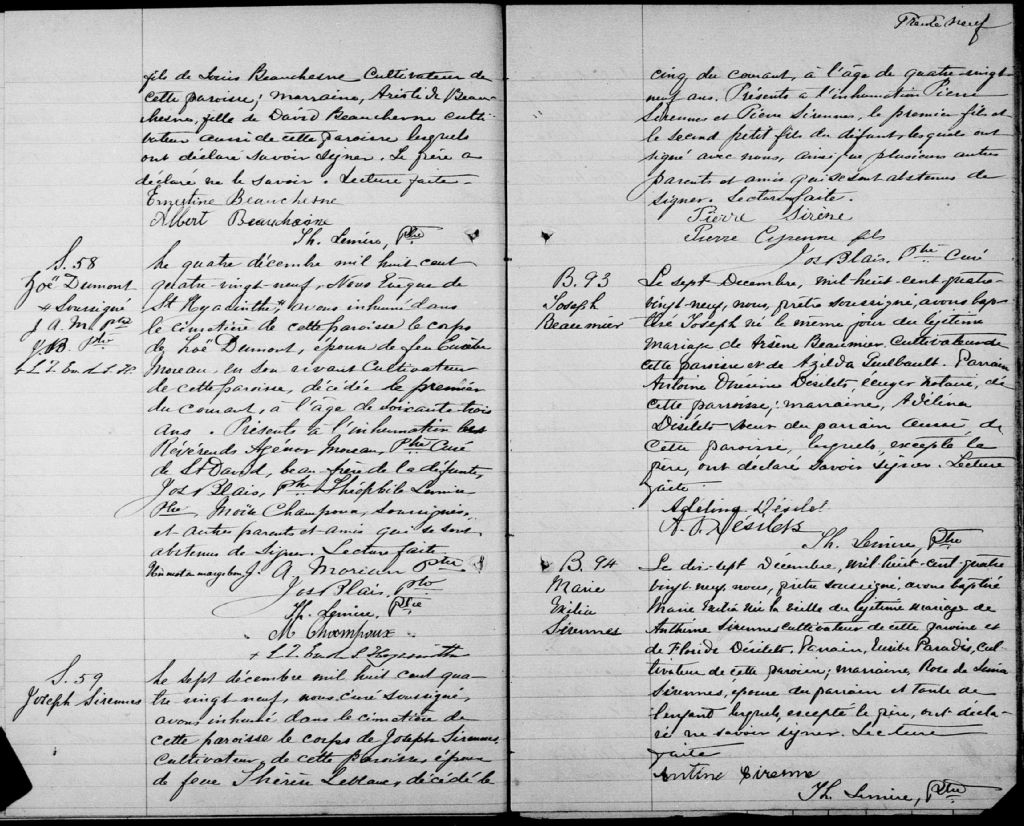 fils de Louis Beauchesne Cultivateur de
cette paroisse; marraine, Aristide Beau-
chesne, fille de David Beauchesne culti-
vateur aussi de cette paroisse lesquels
ont déclaré savoir signer. Le père a
déclaré ne le savoir. Lecture faite.
Ernestine Beauchesne
Albert Beauchesne
Th. Lemire, Ptre
S. 58
Zoë Dumont
+ Soussigné
J. A. M. Ptre
J. B. Ptre
+ L. Z. Ev. de S. H.
Le quatre décembre mil huit cent
quatre-vingt neuf, Nous Evêque de
St Hyacinthe, avons inhumé dans
le cimetière de cette paroisse le corps
de Zoë Dumont, épouse de feu
Moreau en son vivant Cultivateur
de cette paroisse, décédée le premier
du courant, à l'âge de soixante-trois
ans. Présents à l'inhumation les
Révérends Agénor Moreau, Ptre Curé
de St David, beau-frère de la défunte,
Jos Blais, Ptre Théophile Lemire
Ptre, Moïse Champoux, soussignés,
et autres parents et amis qui se sont
abstenus de signer. Lecture faite
Un mot en marge bon J. A. Moreau Ptre
Jos Blais, Ptre
Th. Lemire, Ptre
M Champoux
+ L. Z. Ev. de S. Hyacinthe
S. 59
Joseph Sirennes
Le sept décembre mil huit cent qua-
tre vingt neuf, nous curé soussigné,
avons inhumé dans le cimetière de
cette paroisse le corps de Joseph Sirennes,
Cultivateur de cette paroisse, époux
de feue Thérèse Leblanc, décédé le
Trente neuf
cinq du courant, à l'âge de quatre-vingt-
neuf ans. Présents à l'inhumation Pierre
Sirennes et Pierre Sirennes, le premier fils et
le second petit fils du défunt, lesquels ont
signé avec nous, ainsi que plusieurs autres
parents et amis qui se sont abstenus de
signer. Lecture faite.
Pierre Sirène
Pierre Cyrenne fils
Jos Blais, Ptre Curé
B. 93
Joseph
Beaumier
Le sept Décembre, mil huit cent quatre-
vingt-neuf, nous, prêtre soussigné, avons bap-
tisé Joseph né le même jour du légitime
mariage de Arsène Beaumier, Cultivateur de
cette paroisse et de Azilda Guilbault. Parrain
Antoine Désilets, écuyer notaire, de
cette paroisse; marraine, Adélina
Désilets sœur du parrain aussi de
cette paroisse, lesquels, excepté le
père, ont déclaré savoir signer. Lecture
faite.
Adelina Désilet
A. D. Désilets
Th. Lemire, Ptre
B. 94
Marie
Exilia
Sirennes
Le dix-sept Décembre, mil huit cent quatre
vingt-neuf, nous, prêtre soussigné, avons baptisé
Marie Exilia née la veille du légitime mariage de
Anthime Sirennes cultivateur de cette paroisse et
de Florida Désilets. Parrain, Paradis, Cul-
tivateur de cette paroisse; marraine, Rose de Lima
Sirennes, épouse du parrain et tante de
l'enfant lesquels, excepté le père, ont décla-
ré ne savoir signer. Lecture
faite
Antime Sirenne
Th. Lemire, Ptre